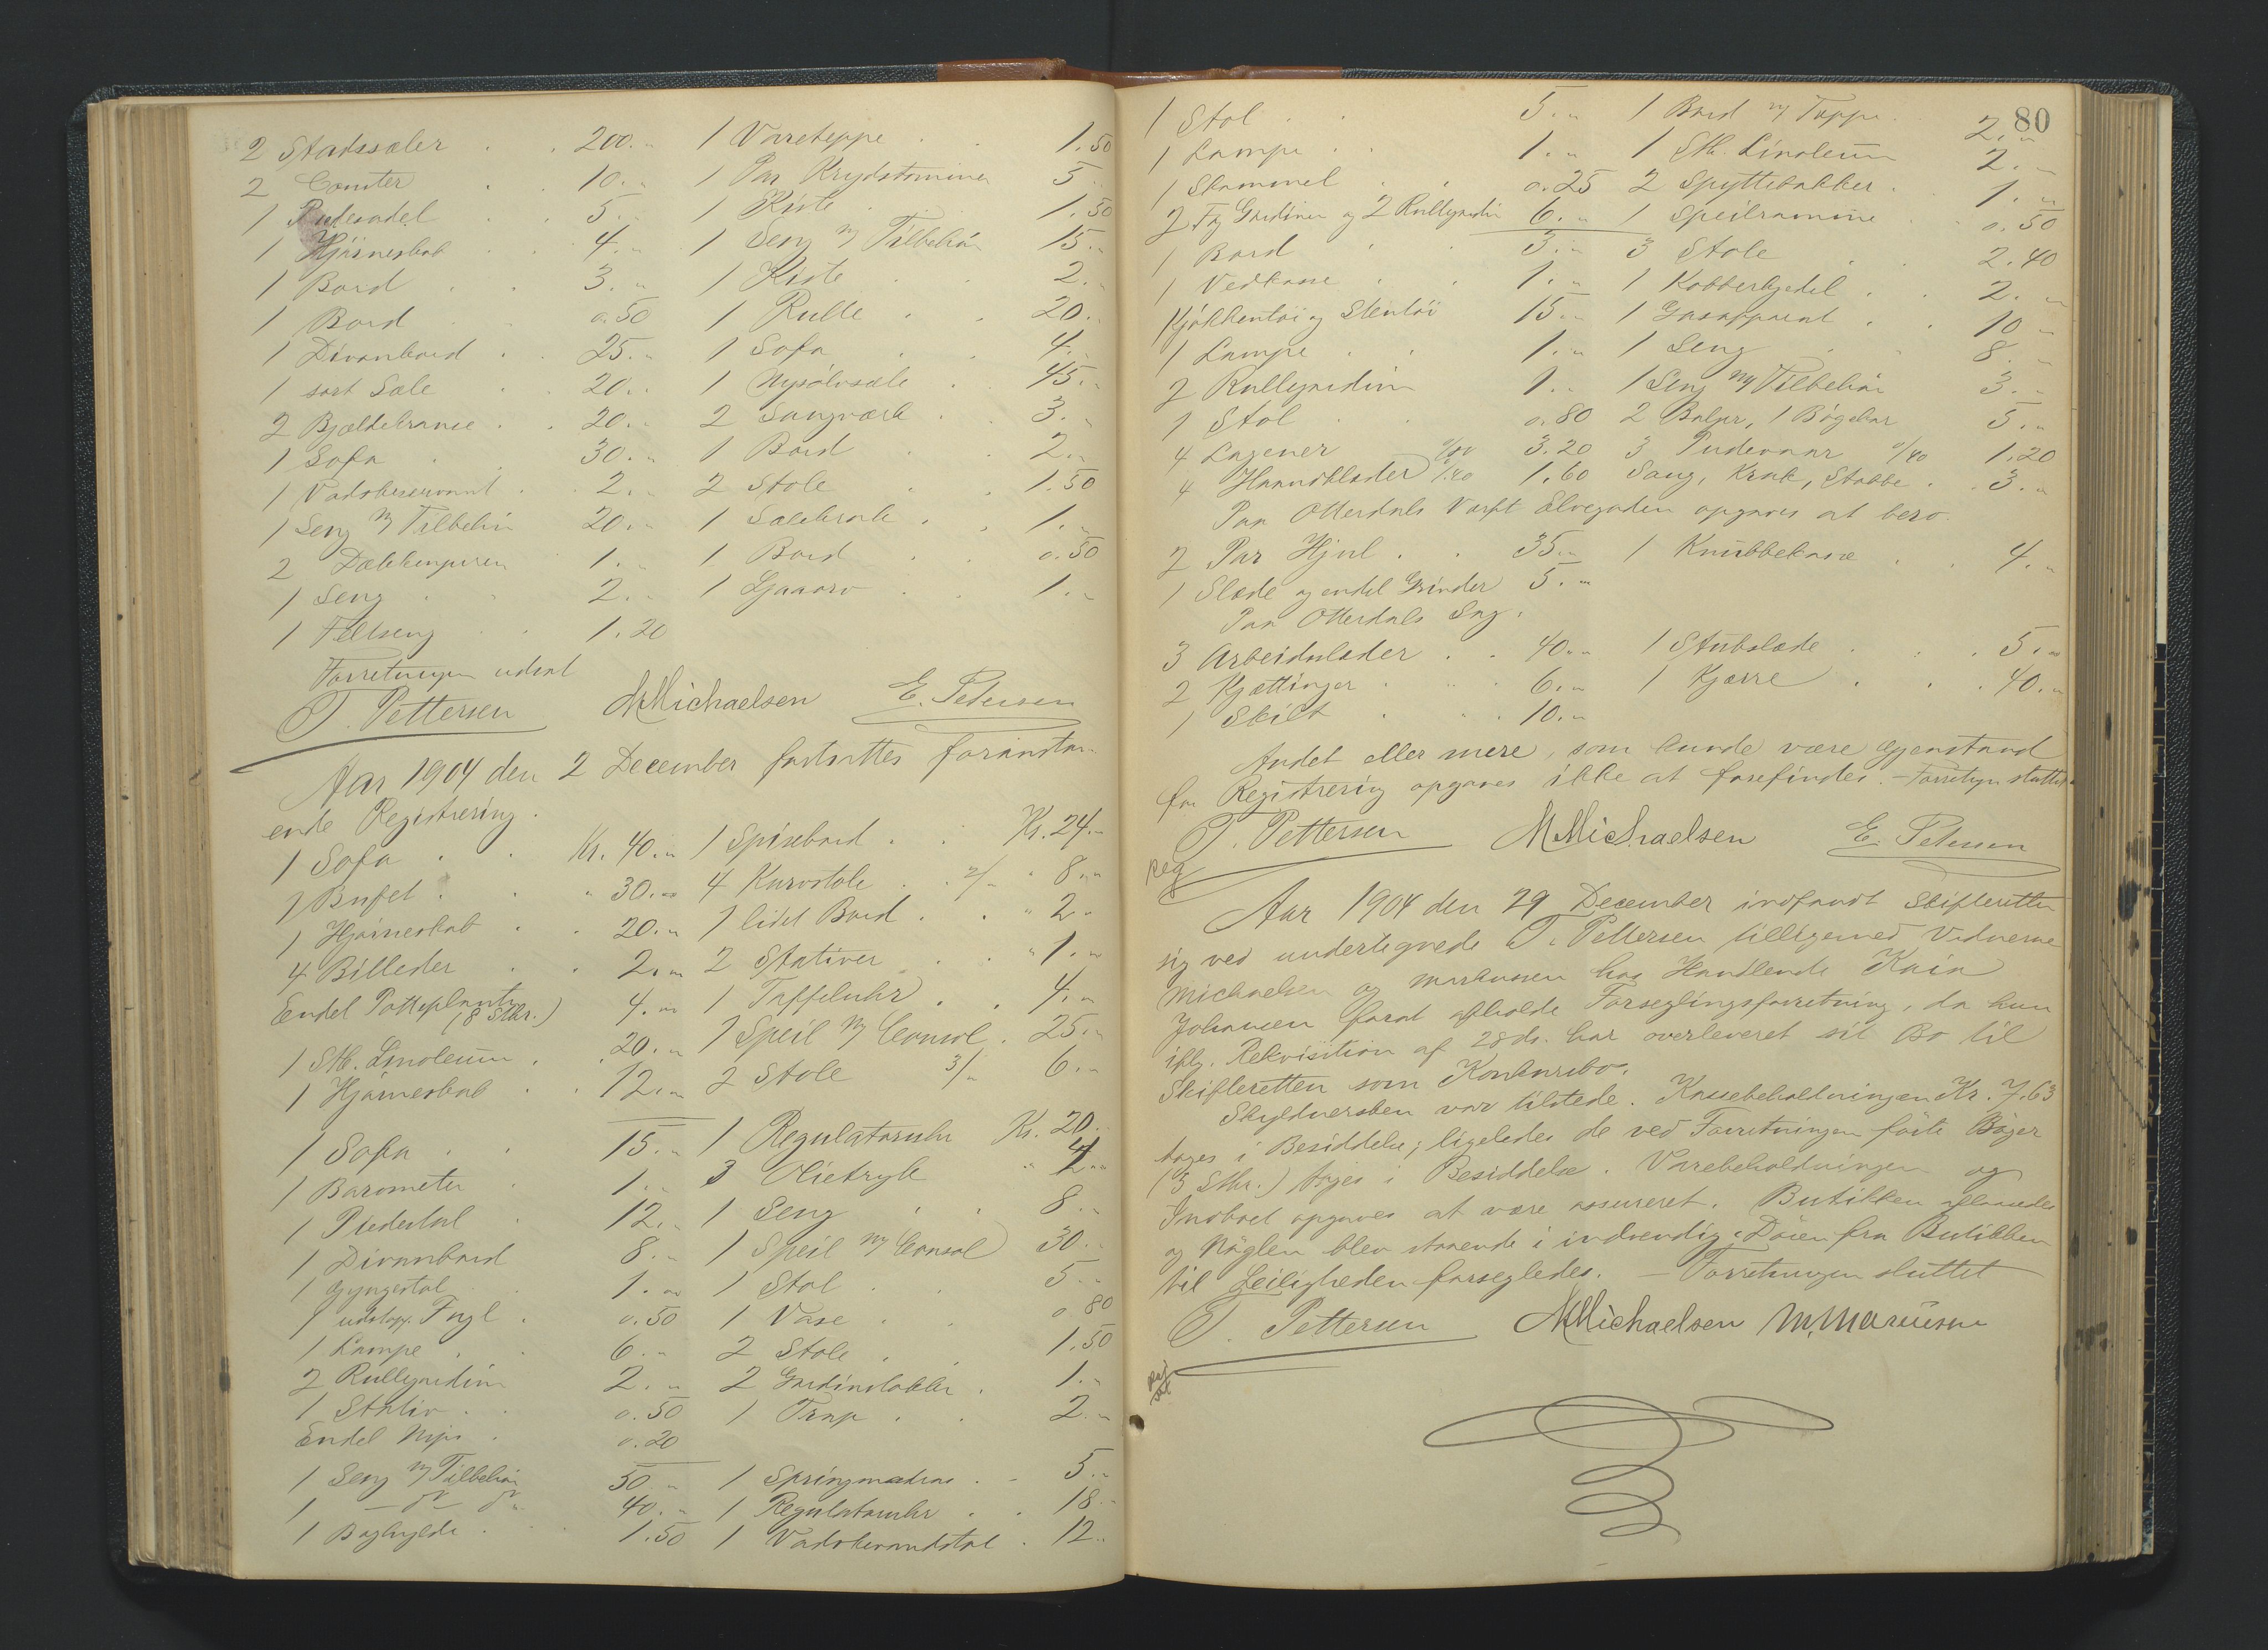 2 Stadssæler . . 200. „ 1 Vareteppe . . 1.50
2 Comter . . 10. „ 1 Par Krydstømmer 5. „
1 Ridesadel . . 5. „ 1 Kiste . . 1.50
1 Hjørneskab . . 4. „ 1 Seng m/ Tilbehør 15. „
1 Bord . . 3. „ 1 Kiste . . 2. „
1 Bord . . 0.50 1 Rulle . . 20. „
1 Divanbord . . 25. „ 1 Sofa . . 4. „
1 sort Sæle . . 20. „ 1 Nysølvsæle . 45. „
2 Bjældekranse . . 20. „ 2 Sengværk . 3. „
1 Sofa . . 30. „ 1 Bord . . 2. „
1 Vadskeservant . . 2. „ 2 Stole . . 1.50
1 Seng m/ Tilbehør 20. „ 1 Sælekrak . . 1. „
2 1. „ 1 Bord . . 0.50
1 Seng . . 2. „ 1 . . 1. „
1 Feltseng . . 1.20
Forretningen udsat
T. Pettersen MMichaelsen E. Petersen
Aar 1904 den 2 December fortsattes foranstaa-
ende Registrering.
1 Sofa . . Kr. 40. „ 1 Spisebord . . Kr. 24. „
1 Bufet . . „ 30. „ 4 Kurvstole . . 2/„ „ 8. „
1 Hjørneskab . . 20. „ 1 lidet Bord . . „ 2. „
4 Billeder . . 2. „ 2 Stativer . . „ 1. „
Endel Potteplanter (8 Stkr.) 4. „ 1 Taffeluhr . . 4. „
1 Stk. Linoleum . . 20. „ 1 Speil m/ Consol . 25. „
1 Hjørneskab . . 12. „ 2 Stole 3/„ 6. „
1 Sofa . . 15. „ 1 Regulatoruhr Kr. 20. „
1 Barometer . 1. „ 3 Olietryk „ 4. „
1 Piedestal . 12. „ 1 Seng . . 8. „
1 Divanbord 8. „ 1 Speil m/ Consol 30. „
1 Gyngestol . . 1. „ 1 Stol . . 5. „
1 udstopp. Fugl . 0.50 1 Vase . . 0.80
1 Lampe . . 6. „ 2 Stole . . 1.50
2 Rullgardin 2. „ 2 Gardinstokker . 1. „
1 Stativ . . 0.50 1 Trap . . 2. „
Endel Nips . 0.20
1 Seng m/ Tilbehør 50. „ 1 Springmadras . . 5. „
1 – do – do 40. „ 1 Regulatoruhr . . 18. „
1 Boghylde . . 1.50 1 Vadskevandstol . 12. „
80
1 Stol . . 5. „ 1 Bord m/ Teppe . 2. „
1 Lampe . . 1. „ 1 Stk. Linoleum 2. „
1 Skammel . . 0.25 2 Spyttebakker . 1. „
2 Fag Gardiner og 2 Rullgardin 6. „ 1 Speilramme . 0.50
1 Bord . . 3. „ 3 Stole . . 2.40
1 Vedkasse . . 1. „ 1 Kobberkjedel . . 2. „
Kjøkkentøi og Stentøi 15. „ 1 Gasapparat . . 10 „
1 Lampe . . 1. „ 1 Seng . . 8. „
2 Rullgardin 1. „ 1 Seng m/ Tilbehør 3. „
1 Stol . . 0.80 2 Baljer, 1 Bøgekar 5. „
4 Lagener 0/80 3.20 3 Pudevaar 0/40 1.20
4 Haandklæder 0/40 1.60 Saug, Krak, Stabbe . . 3. „
Paa Otterdals Værft Elvegaden opgaves at bero
2 Par Hjul . . 35. „ 1 Knubbekasse . . 4. „
1 Slæde og endel Grinder 5. „
Paa Otterdals Sag.
3 Arbeidsslæder . . 40. „ 1 Stubslæde . . . 5. „
2 Kjættinger . . 6. „ 1 Kjærre . . . 40. „
1 Skilt . . 10. „
Andet eller mere, som kunde være Gjenstand
for Registrering opgaves ikke at forefindes. – Forretngn sluttet.
T. Pettersen MMichaelsen E. Petersen
Reg
Aar 1904 den 29 December indfandt Skifteretten
sig ved undertegnede T. Pettersen tilligemed Vidnerne
Michaelsen og Markussen hos Handlende Kaia
Johansen forat afholde Forseglingsforretning, da hun
ifølg. Rekvisition af 28 ds. har overleveret sit Bo til
Skifteretten som Konkursbo.
Skyldnersken var tilstede. Kassebeholdningen Kr. 7.63
toges i Besiddelse; ligeledes de ved Forretningen førte Bøger
(3 Stkr.) toges i Besiddelse. Varebeholdningen og
Indboet opgaves at være assureret. Butikken aflaasedes
og Nøglen blev staaende i indvendig; Døren fra Butikken
til Leiligheden forsegledes. – Forretningen sluttet
T. Pettersen MMichaelsen M. Marcussen
Reg